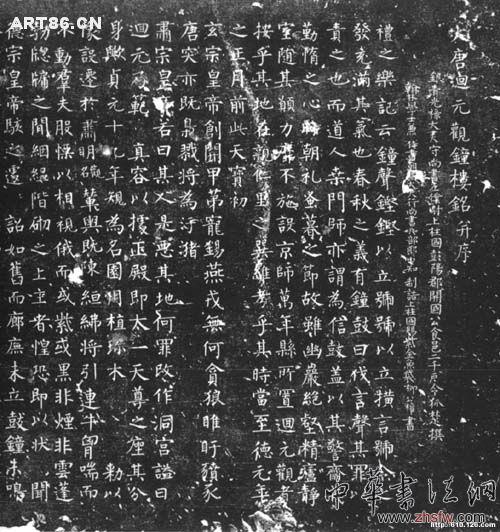 大唐迴元觀鐘樓銘并序
銀青光祿大夫守尚書左僕射上柱國彭陽郡開國公食邑二千戶令狐楚撰
翰林學士兼侍書朝議大夫行尚書兵部郎中知制誥上柱國賜紫金魚袋柳公權書
禮之樂記云鐘聲鏗鏗以立號號以立橫言號令
發充滿其氣也春秋之義有鐘鼓曰伐言聲其罪
責之也而道人桑門師亦謂為信鼓蓋以其警齋
勤惰之心時朝禮蚤暮之節故雖幽巖絕壑精廬靜
室隨其願力靡不施設京師萬年縣所置迴元觀者
按乎其地在親仁里之巽維考乎其時當至德元年
之正月前此天寶初
玄宗皇帝創開甲第寵錫燕戎無何貪狼睢盱豶豕
唐突亦既梟戮將為污瀦
肅宗皇帝若曰其人是惡其地何罪改作洞宮謚曰
迴元乃範 真容以據正殿即太一天尊之座其分
身歟貞元十九年規為名園用植珍木 敕以
像設遷於肅明觀輦輿既陳絙紼將引連牛胷喘而
不動羣夫股慄以相視俄而或紫或黑非煙非雲蓬
勃窗牖之間絪縕階砌之上主者惶恐即以狀 聞
德宗皇帝駭之遽 詔如舊而廊廡未立鼓鐘未鳴
ART86.CN
中华书法网
www.zhsfw.com
http://610.126.com